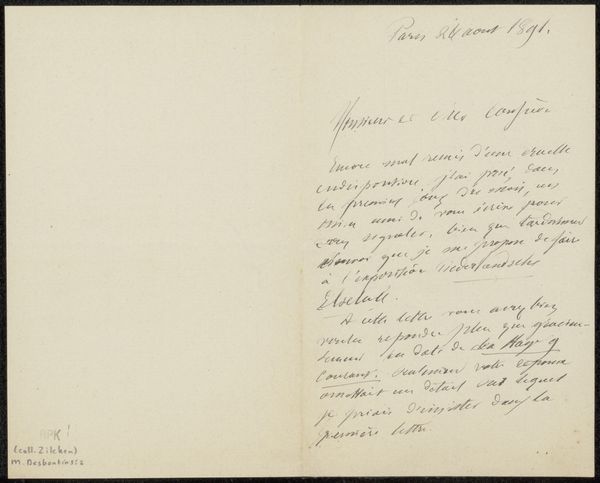 Paris 24 aout 1891.
Monsieur et cher Confrère
Encore mal remis d'une cruelle
indisposition, j'ai prié dans
les premiers jours de
de vous écrire pour
vous signaler, bien que tardivement
que je me propose de faire
à l'exposition Nederlandsche
Etsclub.
A cette lettre vous avez bien
voulu repondre plus que gracieu-
sement en date de La Haye 9
Courant. Seulement votre reponse
omettait un détail sur lequel
je priais d'insister dans la
première lettre.
RPK
(coll. Zilcken)
M. Desboutin 2